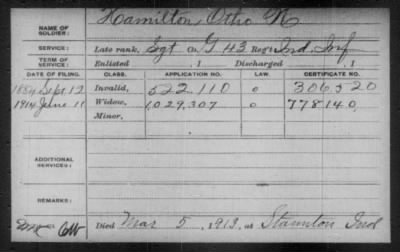 NAME OF SOLDIER: Hamilton, Otho R
SERVICE: Late rank, Sgt Co. G, 43 Reg't Ind. Inf
TERM OF SERVICE: Enlisted , 1 Discharged , 1
DATE OF FILING. CLASS. APPLICATION NO. LAW. CERTIFICATE NO.
1884 Sept 12 Invalid, 522 110 0 306 520
1914 June 11 Widow, 1,029,307 0 778140
Minor,
ADDITIONAL SERVICES:
REMARKS:
Died Mar 5, 1913, at Staunton Ind